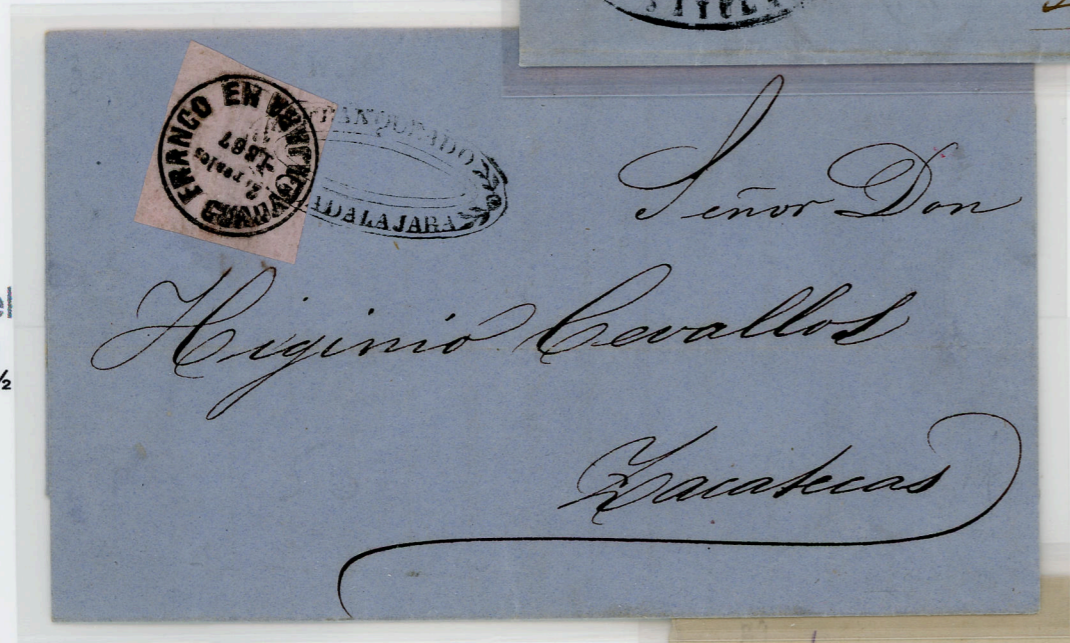 FRANCO EN GUADALAJARA
2 reales
1867
FRANQUEADO
GUADALAJARA
Señor Don
Higinio Cevallos
Zacatecas
½